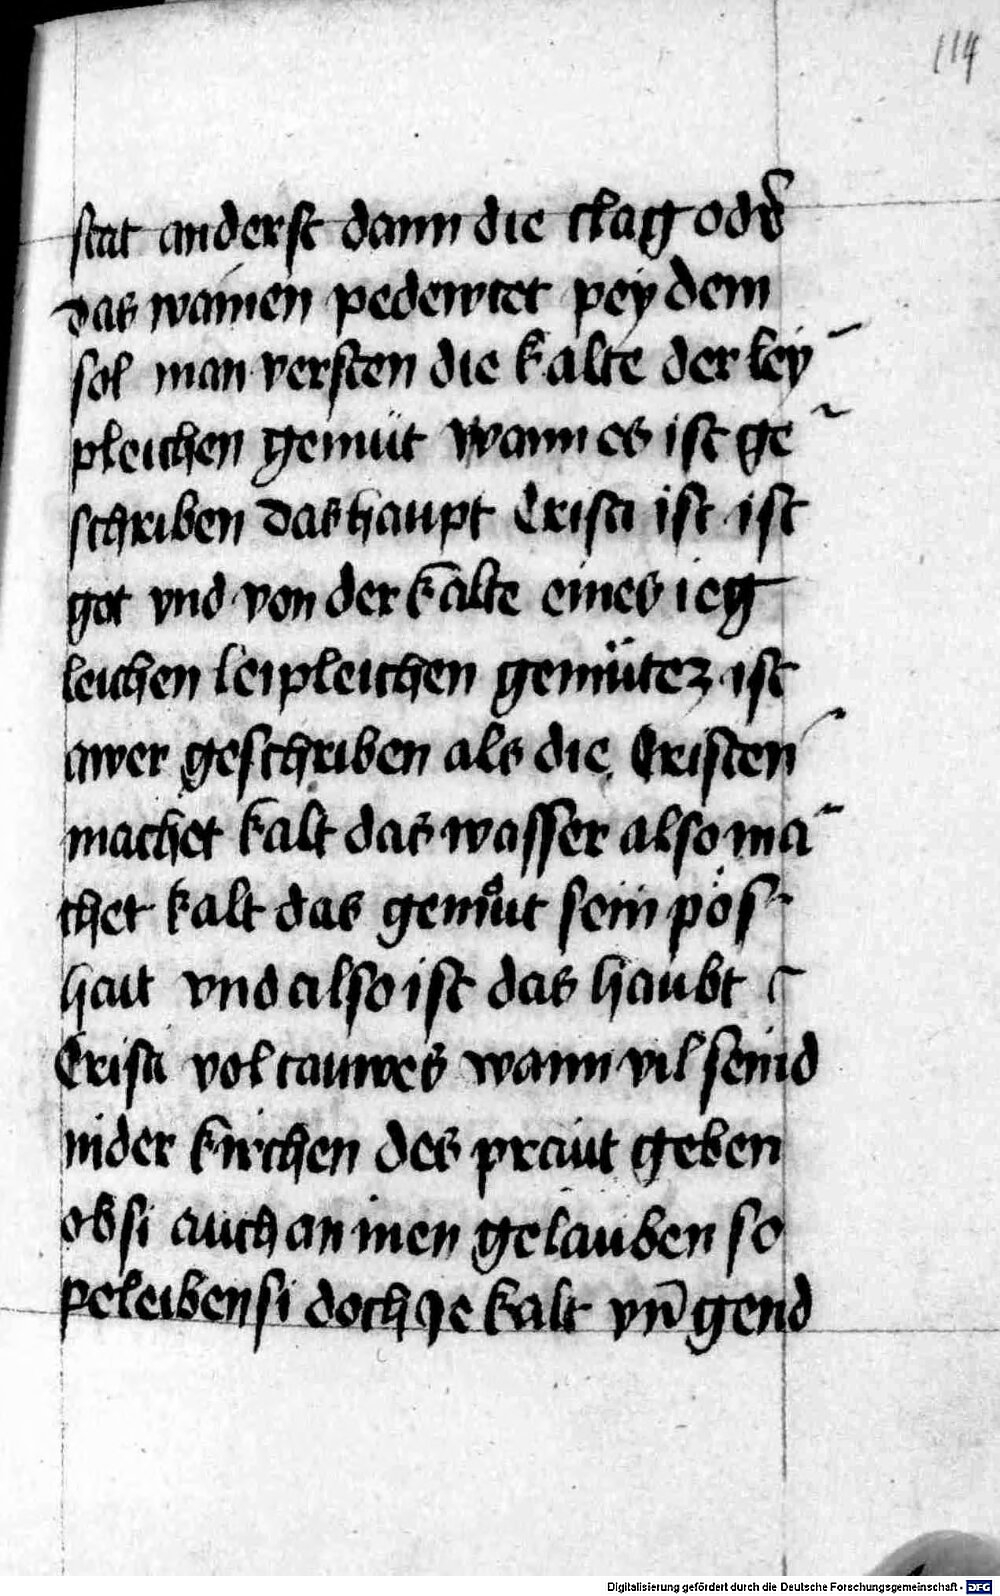 114
stat anderst dann die clag od&#x27;
das wainen pedewtet pey dem
sol man versten die kalte der ley
pleichen gemüt wann es ist ge
schriben das haupt Cristi ist ist
got vnd von der kalte eines ieg
leichen leipleichen gemütez ist
awer geschriben als die Cristen
machet kalt das wasser also ma
chet kalt das gemuͦt sein pös
hait vnd also ist das haubt
Cristi vol tauwes wann vil seind
in der kirchen des praut geben
ob si auch an inen gelauben so
peleiben si doch ye kalt vn̄ gend
Digitalisierung gefördert durch die Deutsche Forschungsgemeinschaft - DFG